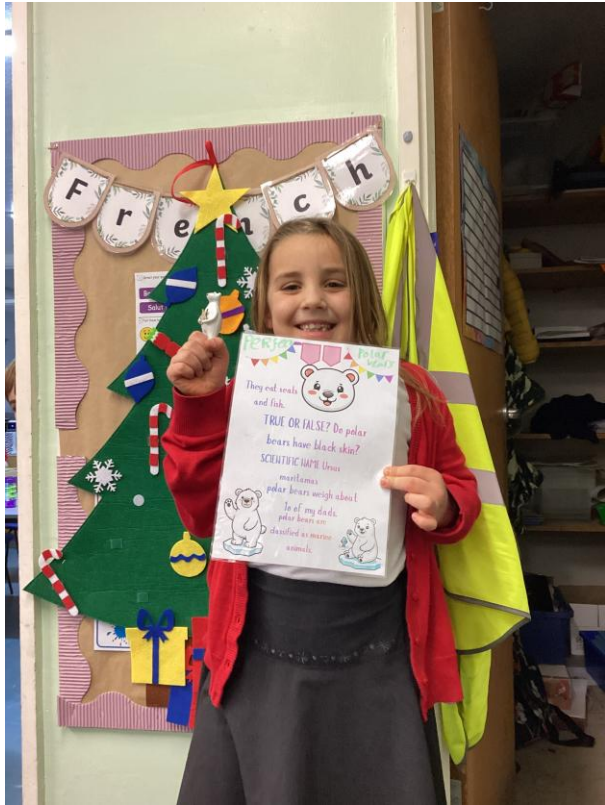 French
Salut
Perfect
Polar
bears
They eat seals
and fish.
TRUE OR FALSE? Do polar
bears have black skin?
SCIENTIFIC NAME Ursus
maritamias
polar bears weigh about
10 of my dads.
polar bears are
classified as marine
animals.